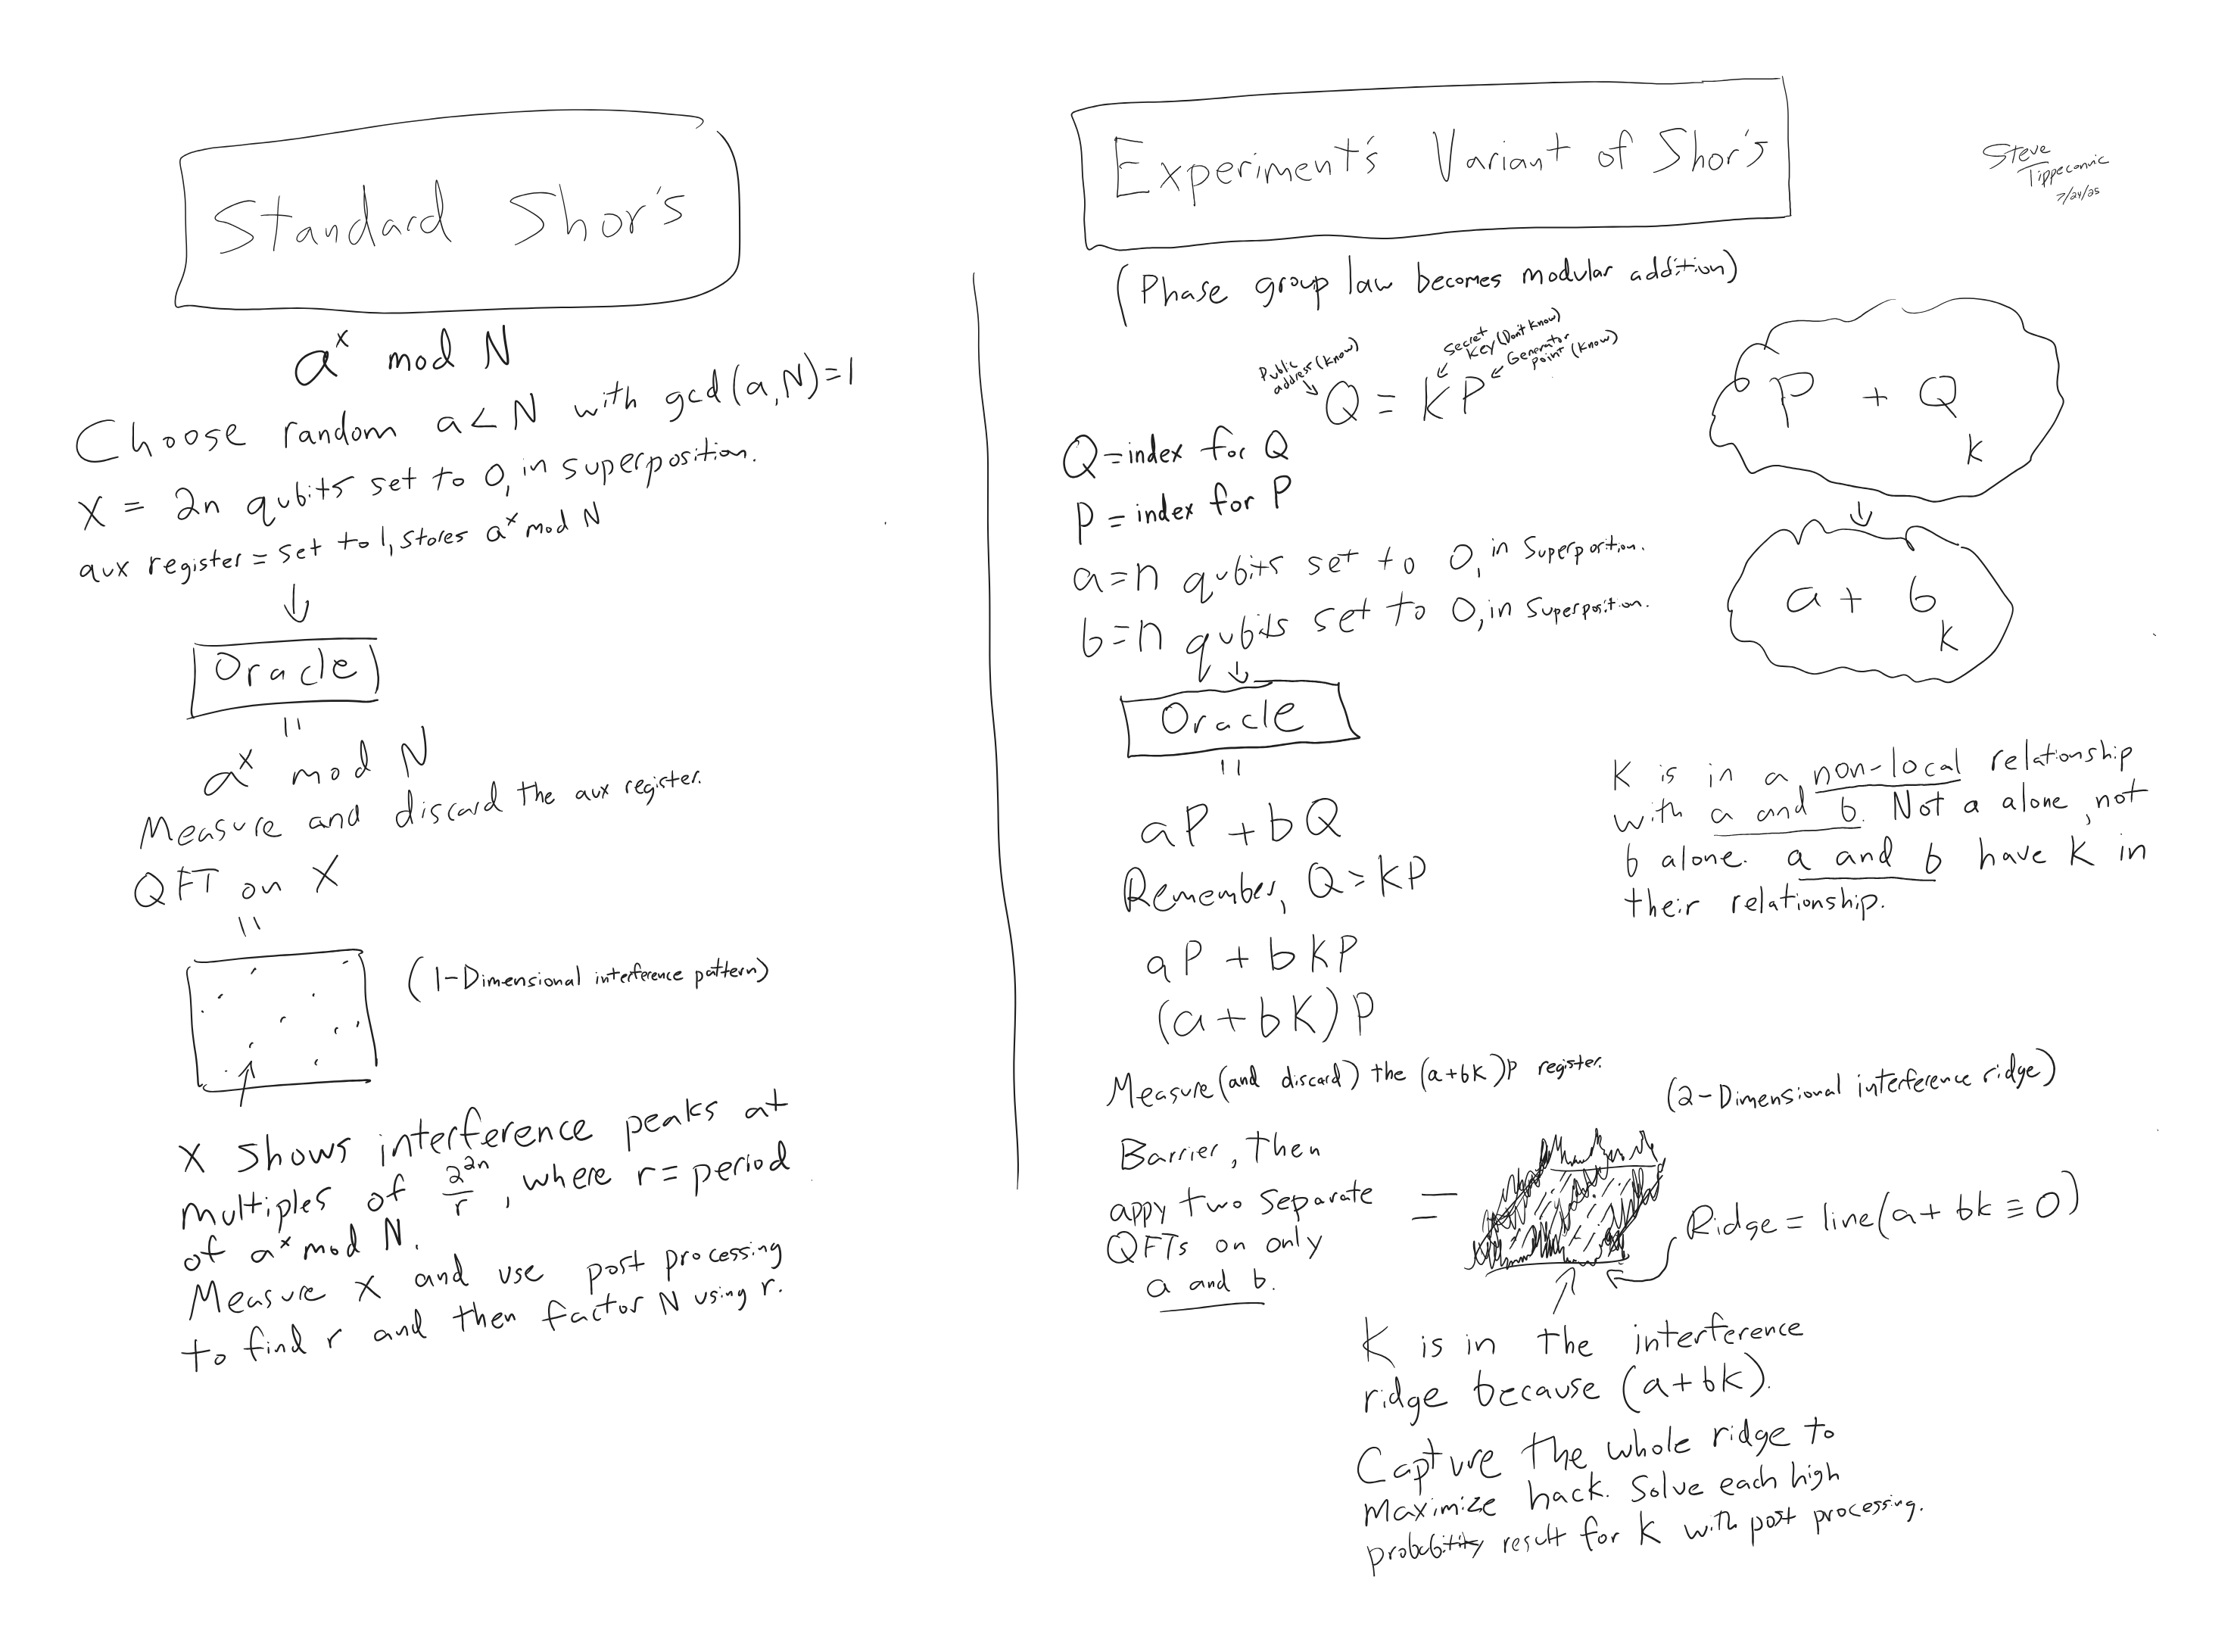 Standard Shor's
a^x mod N
Choose random a < N with gcd(a,N)=1
X = 2n qubits set to 0, in superposition.
aux register = set to 1, stores a^x mod N
↓
Oracle
=
a^x mod N
Measure and discard the aux register.
QFT on X
=
(1-Dimensional interference pattern)
X shows interference peaks at
multiples of 2^2n/r, where r = period
of a^x mod N.
Measure X and use post processing
to find r and then factor N using r.
Experiment's Variant of Shor's
Steve
Tippeconnic
7/24/25
(Phase group law becomes modular addition)
Public
address (Know)
Secret
Key (Don't Know)
Generator
point (Know)
Q = KP
Q = index for Q
P = index for P
a = n qubits set to 0, in Superposition.
b = n qubits set to 0, in Superposition.
↓
Oracle
=
aP + bQ
Remember, Q = KP
aP + bKP
(a+bK)P
Measure (and discard) the (a+bk)P register.
Barrier, then
appy two separate
QFTs on only
a and b.
=
P + Q
K
↓
a + b
K
K is in a non-local relationship
with a and b. Not a alone, not
b alone. a and b have K in
their relationship.
(2-Dimensional interference ridge)
Ridge = line(a + bk ≡ 0)
K is in the interference
ridge because (a+bk).
Capture the whole ridge to
maximize hack. Solve each high
probability result for K with post processing.